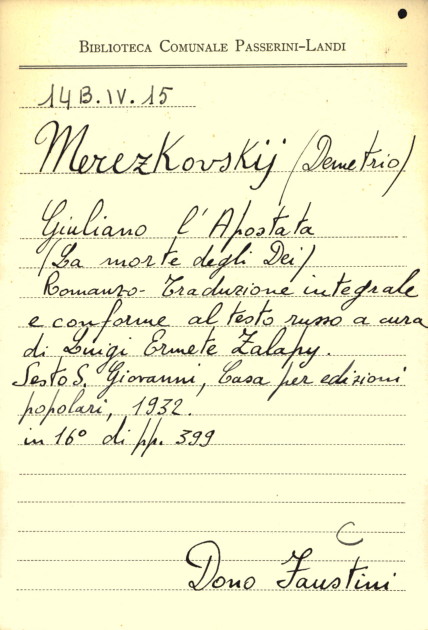 BIBLIOTECA COMUNALE PASSERINI-LANDI
14B.IV.15
Merezkovskij (Demetrio)
Giuliano l'Apostata
(La morte degli Dei)
Romanzo - Traduzione integrale
e conforme al testo russo a cura
di Luigi Ermete Zalapy.
Sesto S. Giovanni, Casa per edizioni
popolari, 1932.
in 16° di pp. 399
C
Dono Faustini